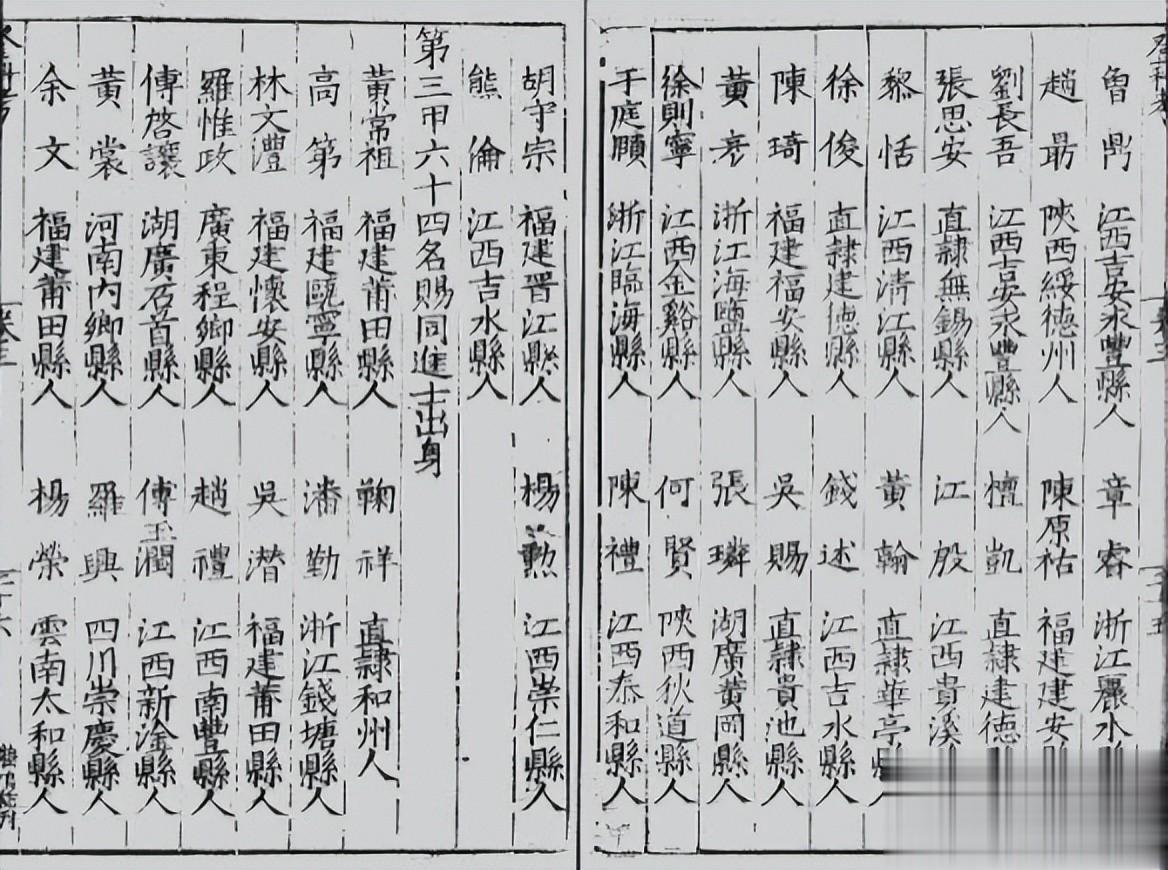 魯鼎 江西吉安永豐縣人 章睿 浙江麗水
趙最 陝西綏德州人 陳原祐 福建建安
劉長吾 江西吉安永豐縣人 檀凱 直隸建德
張思安 直隸無錫縣人 江殷 江西貴溪
黎恬 江西清江縣人 黃翰 直隸華亭縣人
徐俊 直隸建德縣人 錢述 江西吉水縣人
陳琦 福建福安縣人 吳賜 直隸貴池縣人
黃彥 浙江海鹽縣人 張璘 湖廣黃岡縣人
徐則寧 江西金谿縣人 何賢 陝西狄道縣人
于庭頤 浙江臨海縣人 陳禮 江西泰和縣人
胡守宗 福建晉江縣人 楊勲 江西崇仁縣人
熊倫 江西吉水縣人
第三甲六十四名賜同進士出身
黃常祖 福建莆田縣人 鞠祥 直隸和州人
高第 福建甌寧縣人 潘勤 浙江錢塘縣人
林文澧 福建懷安縣人 吳潜 福建莆田縣人
羅惟政 廣東程鄉縣人 趙禮 江西南豐縣人
傅啓讓 湖廣石首縣人 傅玉潤 江西新淦縣人
黃裳 河南內鄉縣人 羅興 四川崇慶縣人
余文 福建莆田縣人 楊榮 雲南太和縣人